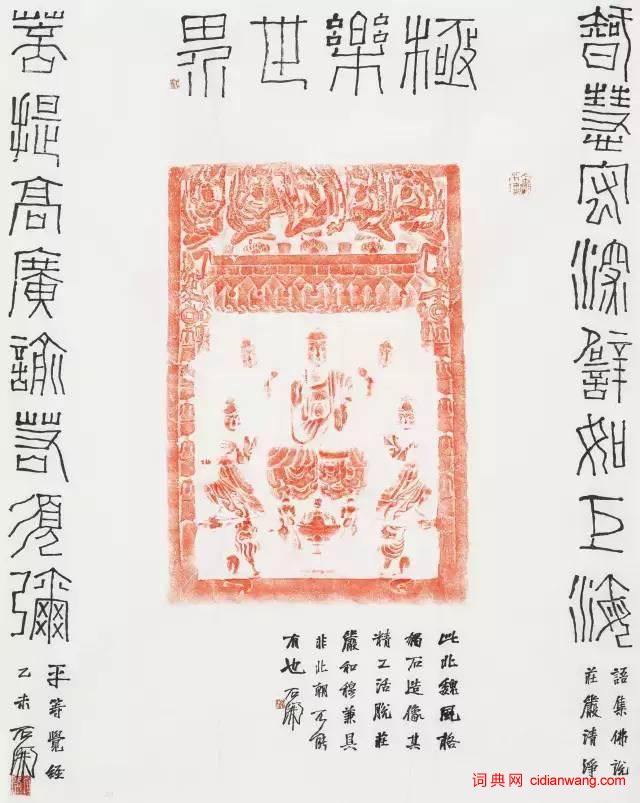 極樂世界
智慧宏深譬如巨海
語集佛說
莊嚴清淨
菩提高廣諭若須彌
平等覺經
乙未 石開
此北魏風格
獨石造像其
精工活脫莊
嚴和穆兼具
非北朝不能
有也 石開
词典网 cidianwang.com